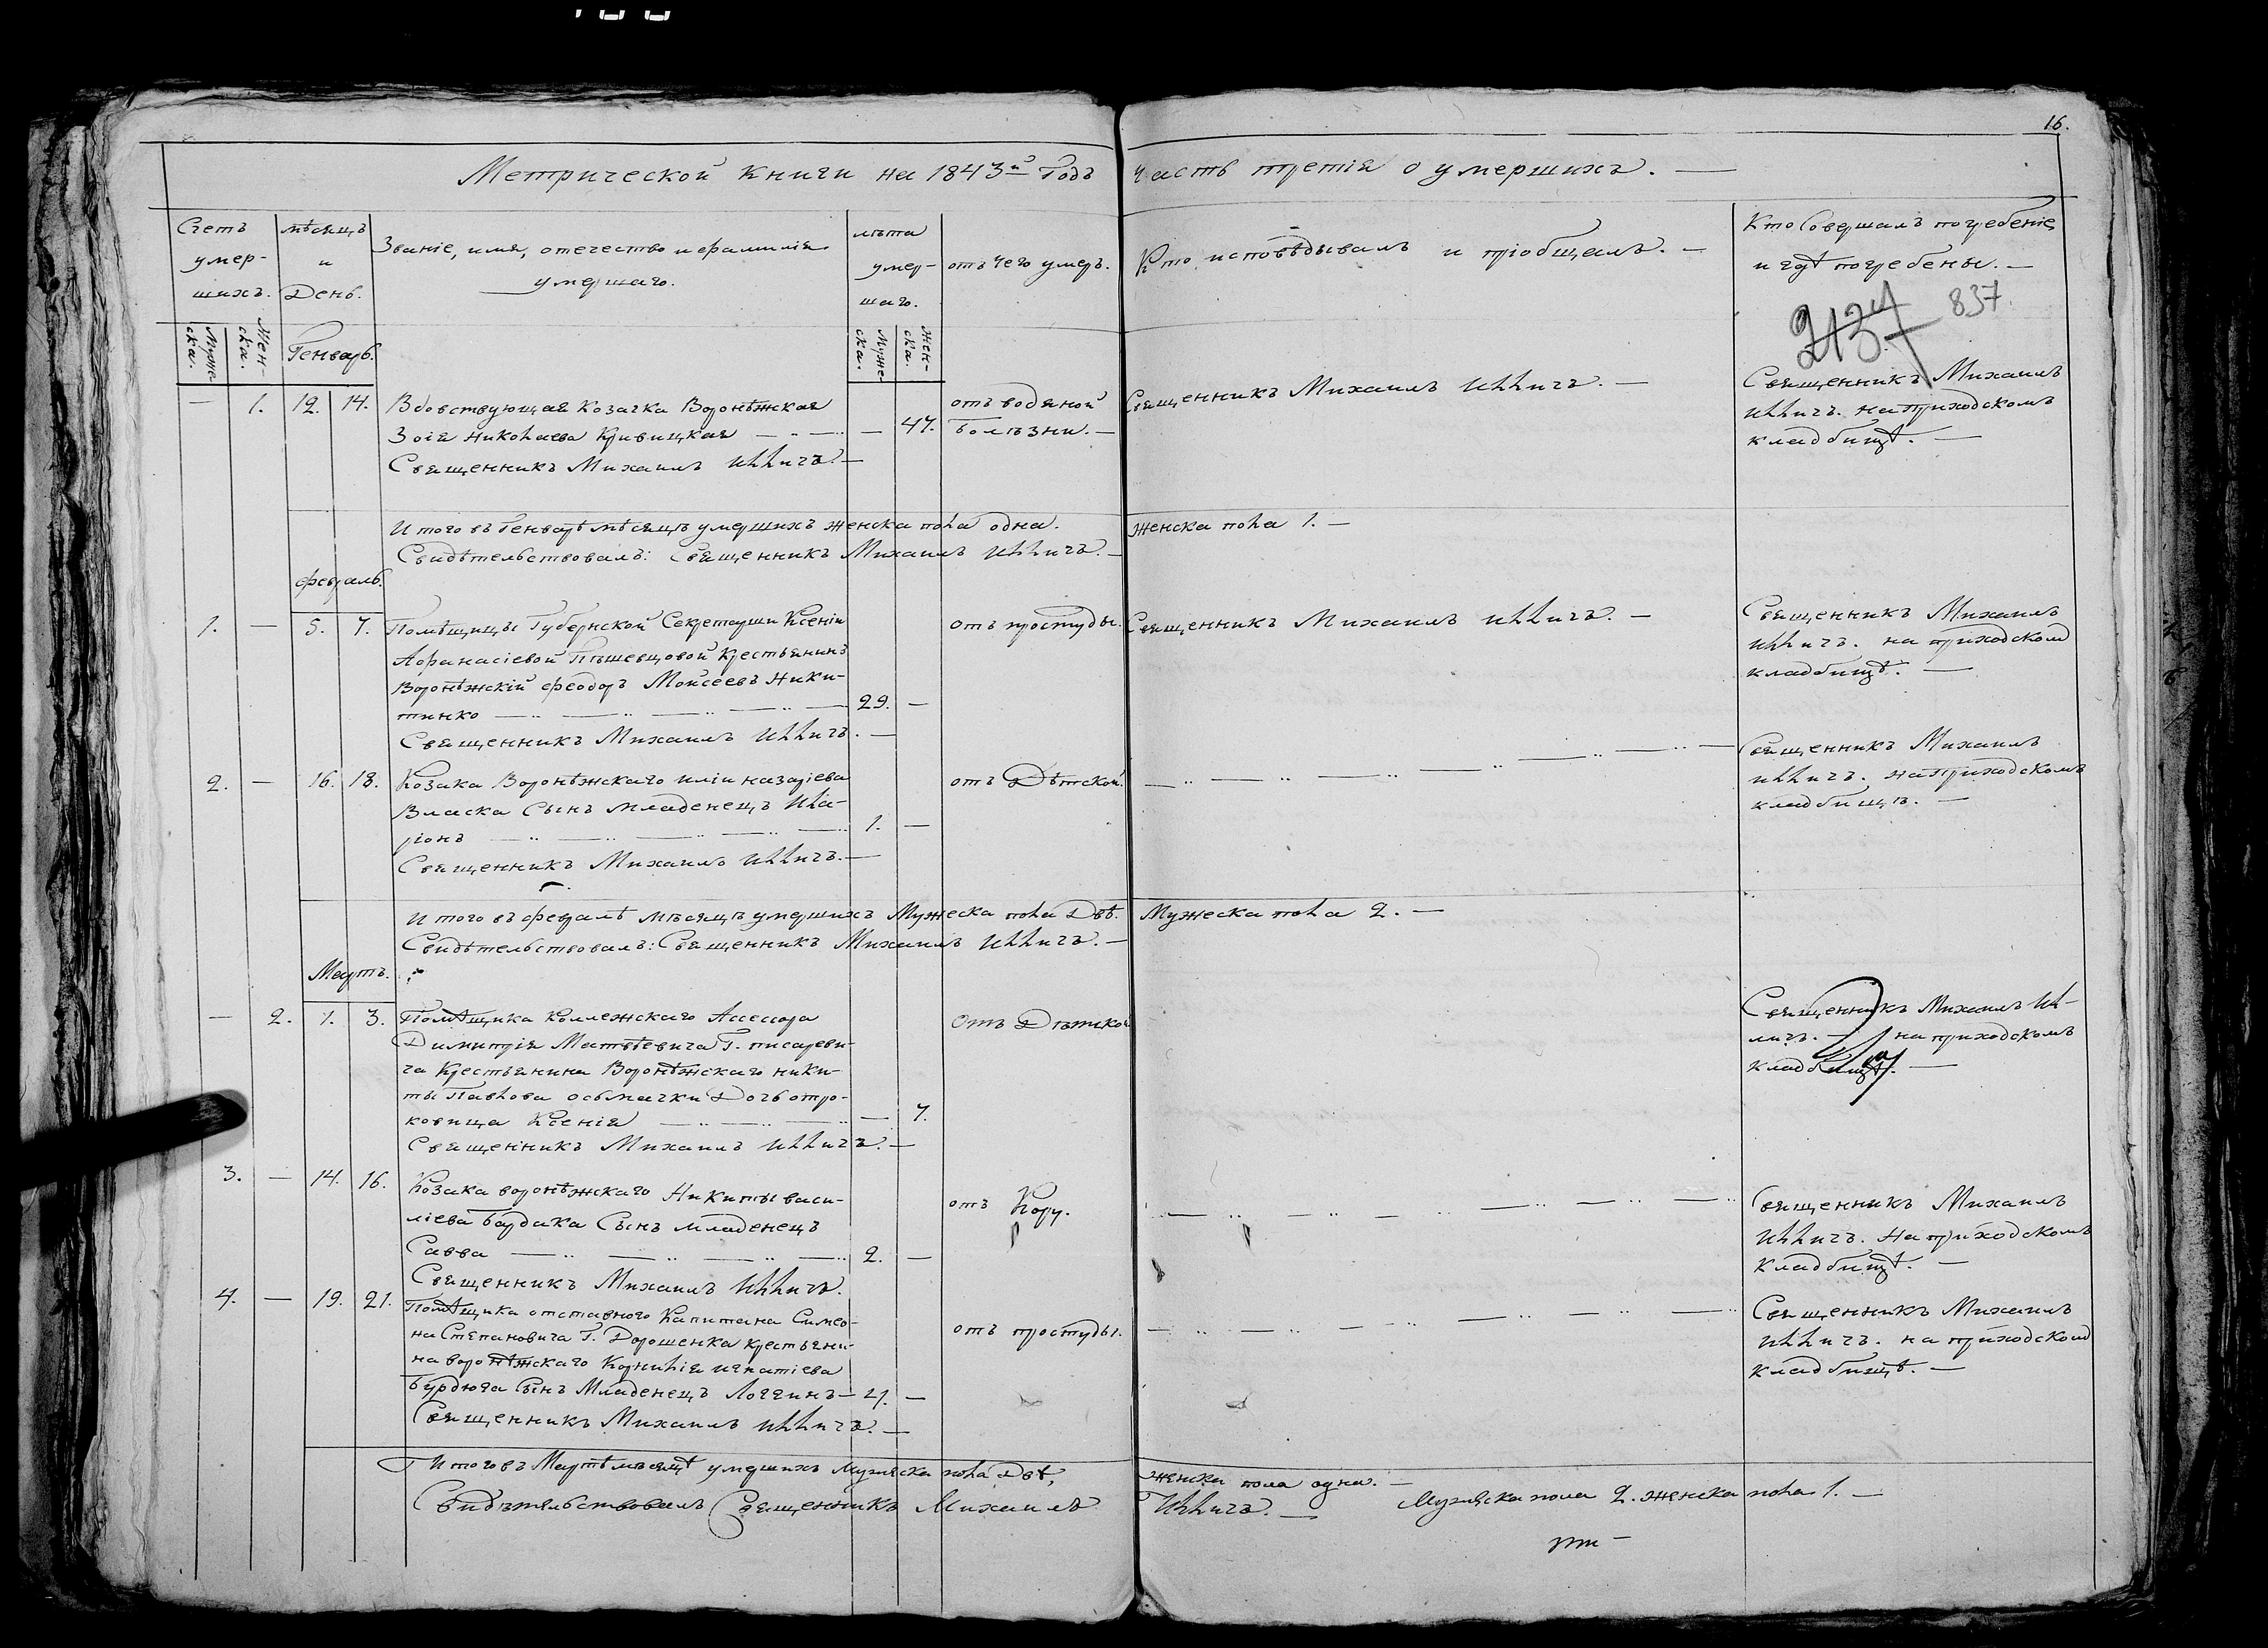 16.
Метрической книги на 1843й Годъ часть третія о умершихъ. —
Счетъ умер-шихъ.
мѣсяцъ и День.
Званіе, имя, отечество и фамилія умершаго.
лѣта умер-шаго.
отъ чего умеръ.
Кто исповѣдывалъ и пріобщалъ. —
Кто Совершалъ погребеніе и гдѣ погребены. —
837
Муже-ска.
Жен-ска.
Генварь.
Муже-ска.
Жен-ска.
— 1. 12. 14.
Вдовствующая Козачка Воронѣжская
Зоія Николаева Кривицкая — — 47.
Священникъ Михаилъ Илличъ. —
отъ водяной
болѣзни. —
Священникъ Михаилъ Илличъ. —
Священникъ Михаилъ
Илличъ. на приходскомъ
кладбищѣ. —
Итого въ Генварѣ мѣсяцѣ умершихъ женска пола одна. женска пола 1. —
Свидѣтельствовалъ: Священникъ Михаилъ Илличъ. —
февраль.
1. — 5. 7.
Помѣщицы Губернской Секретарши Ксеніи
Афанасіевой Пѣшевцовой Крестьянинъ
Воронѣжскій Феодоръ Моисеевъ Ники-
тинко — 29. —
Священникъ Михаилъ Илличъ. —
отъ простуды.
Священникъ Михаилъ Илличъ. —
Священникъ Михаилъ
Илличъ. на приходском
кладбищѣ. —
2. — 16. 18.
Козака Воронѣжскаго иліи назаріева
Власка Сынъ младенецъ Ила-
ріонъ — 1. —
Священникъ Михаилъ Илличъ. —
отъ Дѣтской.
Священникъ Михаилъ
илличъ. на приходскомъ
кладбищѣ. —
Итого въ февралѣ мѣсяцѣ умершихъ Мужеска пола Двѣ. Мужеска пола 2. —
Свидѣтельствовалъ: Священникъ Михаилъ Илличъ. —
Мартъ.
— 2. 1. 3.
Помѣщика Коллежскаго Ассесора
Димитрія Матвѣевича Г. писареви-
ча Крестьянина Воронѣжскаго ники-
ты Павлова осьмачки Дочь отро-
ковица Ксенія — 7.
Священникъ Михаилъ Илличъ. —
отъ Дѣтской
Священникъ Михаилъ Ил-
личъ. — на приходскомъ
кладбищѣ. —
3. — 14. 16.
Козака воронѣжскаго Никиты васи-
ліева Бардака Сынъ младенецъ
Савва — 2. —
Священникъ Михаилъ Илличъ.
отъ Кору.
Священникъ Михаилъ
Илличъ. На приходскомъ
Кладбищѣ. —
4. — 19. 21.
Помѣщика отставного Капитана Симео-
на Степановича Г. Дорошенка крестьяни-
на воронѣжскаго Корнилія игнатіева
Бурдюга Сынъ Младенецъ Логгинъ —
Священникъ Михаилъ Илличъ. —
отъ простуды.
Священникъ Михаилъ
Илличъ. на приходском
кладбищѣ. —
Итого въ Мартѣ мѣсяцѣ умерших мужеска пола Двѣ, женска пола одна. —
Свидѣтельствовалъ Священникъ Михаилъ Илличъ. — Мужеска пола 2. женска пола 1. —